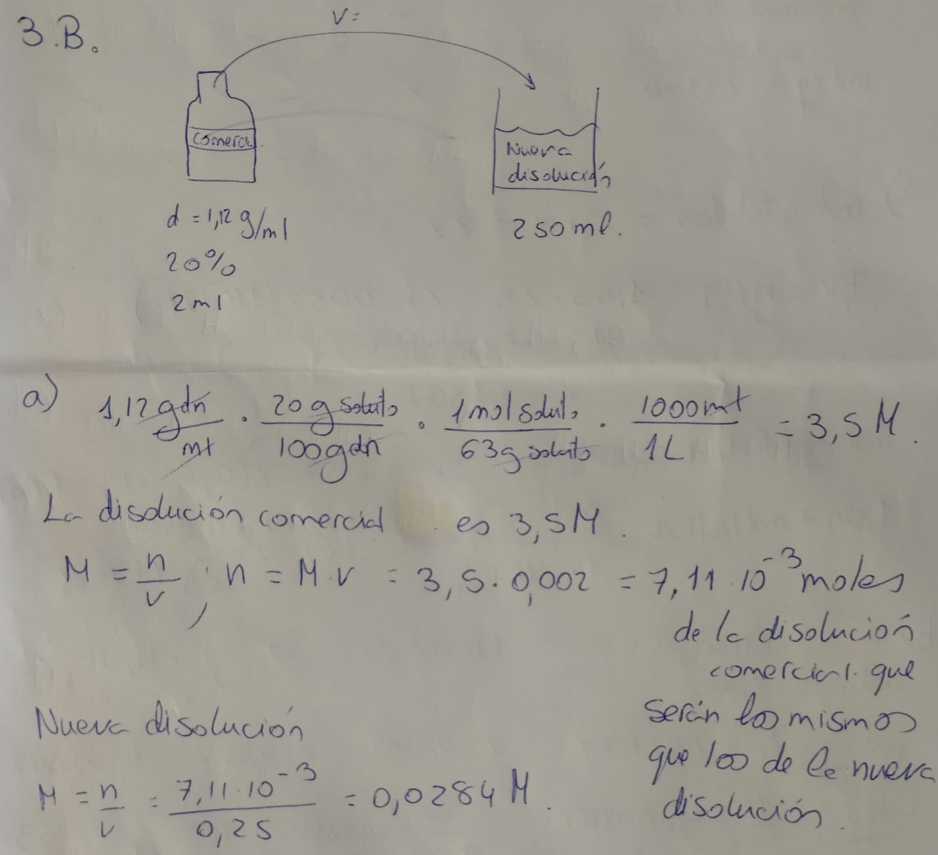 3.B.
V=
Comercial
Nueva
disolución
d = 1,12 g/ml
20%
2 ml
250 ml.
a) 1,12 g dn / ml · 20 g soluto / 100 g dn · 1 mol soluto / 63 g soluto · 1000 ml / 1L = 3,5 M.
La disolución comercial es 3,5M.
M = n/v ; n = M·v = 3,5·0,002 = 7,11·10⁻³ moles
de la disolución
comercial. que
serán los mismos
que los de la nueva
disolución.
Nueva disolución
M = n/v = 7,11·10⁻³ / 0,25 = 0,0284 M.